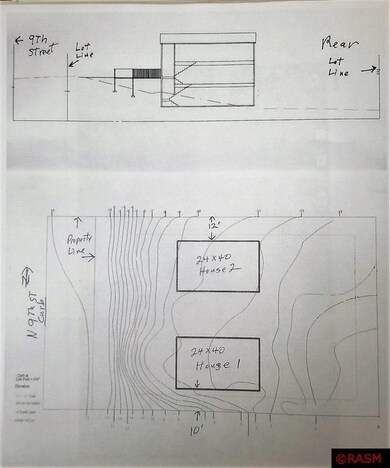 ← 9TH
Street
Lot
Line
Rear
Lot
Line
12'
Property
Line
24x40
House 2
N 9th St
Curb
24x40
House 1
10'
©RASM